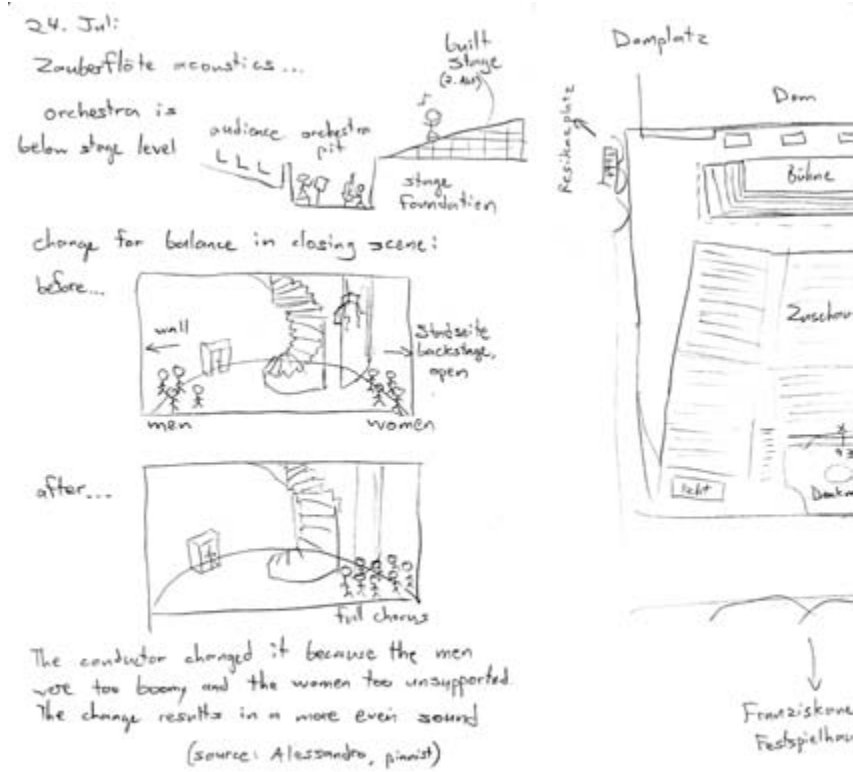 24. Juli
Zauberflöte acoustics...
orchestra is
below stage level
audience
orchestra
pit
built
stage
(2. Akt)
stage
foundation
change for balance in closing scene:
before...
wall
Stadseite
backstage,
open
men
women
after...
full chorus
The conductor changed it because the men
were too boomy and the women too unsupported.
The change results in a more even sound
(source: Alessandro, pianist)
Domplatz
Residenzplatz
Dom
Bühne
Zuschau
x
93
Licht
Denkm
Franziskane
Festspielhau